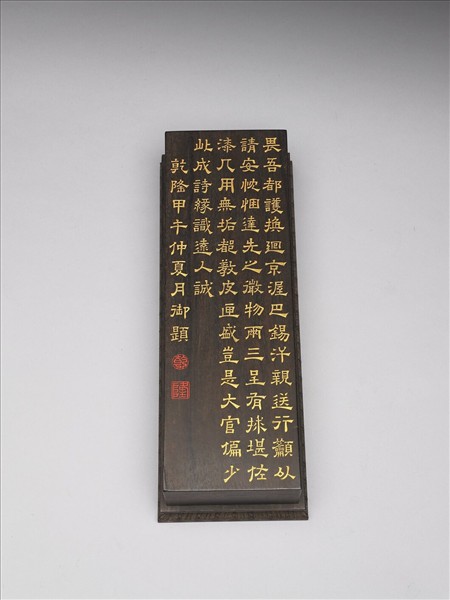 畏吾都護換迴京渥巴錫洋親送行籲从
請安忱悃達先之微物兩三呈有捄堪佐
漆几用無垢都教皮匣盛豈是大官偏少
此成詩緣識遠人誠
乾隆甲午仲夏月御題